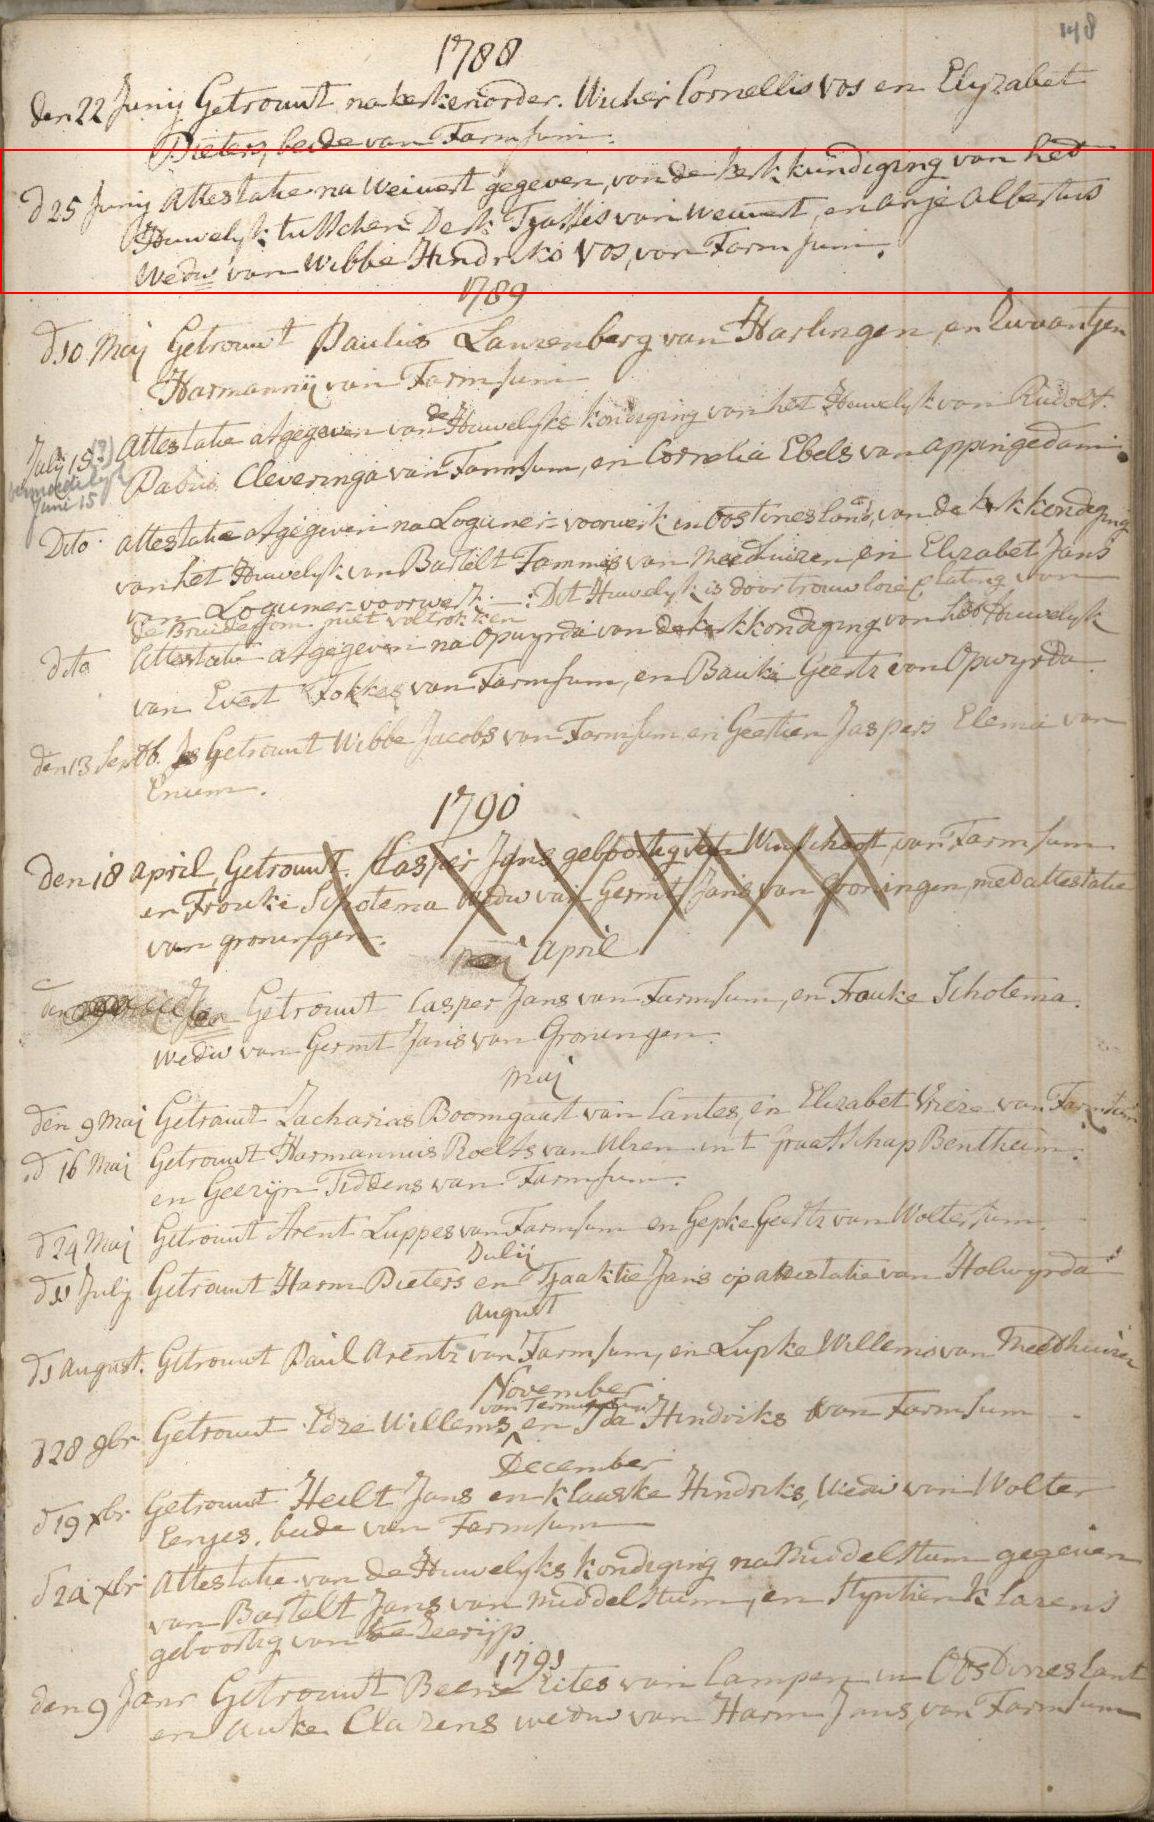 148
1788
den 22 Junij Getrouwt na kerkenorder. Wicher Cornellis Vos en Elyzabet
Pieters, beide van Farmsum.
d 25 Junij Attestatie na Weiwert gegeven, van de kerkkundiging van het
Huwelijk tusschen Derk Tjassis van Weiwert, en Anje Albertus
Wedw van Wibbe Hindriks Vos, van Farmsum.
1789
d 10 Maij Getrouwt Paulus Lanzenberg van Harlingen, en Zwaantjen
Harmannij van Farmsum
July 15 (?) Attestatie afgegeven van de Huwelyks kondiging van het Huwelyk van Rudolt.
vermoedelijk
Juni 15
Pabus Cleveringa van Farmsum, en Cornelia Ebels van appingedam.
Dito attestatie afgegeven na Logumer-voorwerk in Oostvriesland, van de kerkkondiging
van het Huwelyk van Bartelt Tammes van Meedhuizen, en Elizabet Jans
van Logumer-voorwerk. Dit Huwelyk is door trouwloze lating van
de Bruidegom niet voltrokken
dito Attestatie afgegeven na Opwyrda van de kerkkondiging van het Huwelyk
van Evert Fokkes van Farmsum, en Bauke Geerts van Opwyrda.
den 13 Septb. Getrouwt Wibbe Jacobs van Farmsum en Geertien Jaspers Elema van
Enum.
1790
Den 18 april, Getrouwt. Casper Jans geboortig van Winschoot, van Farmsum
en Frouke Schotema wedw van Germt Jans van Groningen, met attestatie
van groningen.
april
den Getrouwt Casper Jans van Farmsum, en Frouke Schotema.
wedw van Germt Jans van Groningen.
Maij
den 9 Maij Getrouwt Zacharias Boomgaart van Lantes, en Elizabet Vrieze van Farmsum
d 16 Maij Getrouwt Harmannus Roelfs van Ulzen in 't Graafschap Bentheim.
en Geezijn Tiddens van Farmsum.
d 24 Maij Getrouwt Arent Luppes van Farmsum en Gepke Geerts van Woltersum.
Julij
d 11 July Getrouwt Harm Pieters en Tjaaktie Jans op attestatie van Holwyrda
August
d 1 August. Getrouwt Paul Arentz van Farmsum, en Lupke Willems van Meedhuizen
November
van Termunten
d 28 9br Getrouwt Edze Willems, en Ida Hindriks van Farmsum
December
d 19 xbr Getrouwt Heilt Jans en Klaaske Hindriks, Wedw van Wolter
Eenjes. beide van Farmsum
d 21 xbr Attestatie van de Huwelyks kondiging na Middelstum gegeven
van Bartelt Jans van Middelstum, en Styntien Klazens
geboortig van Zeerijp
1791
den 9 Janr Getrouwt Beene Eites van Campen in Oostvrieslant
en Auke Clazens wedw van Harm Jans, van Farmsum